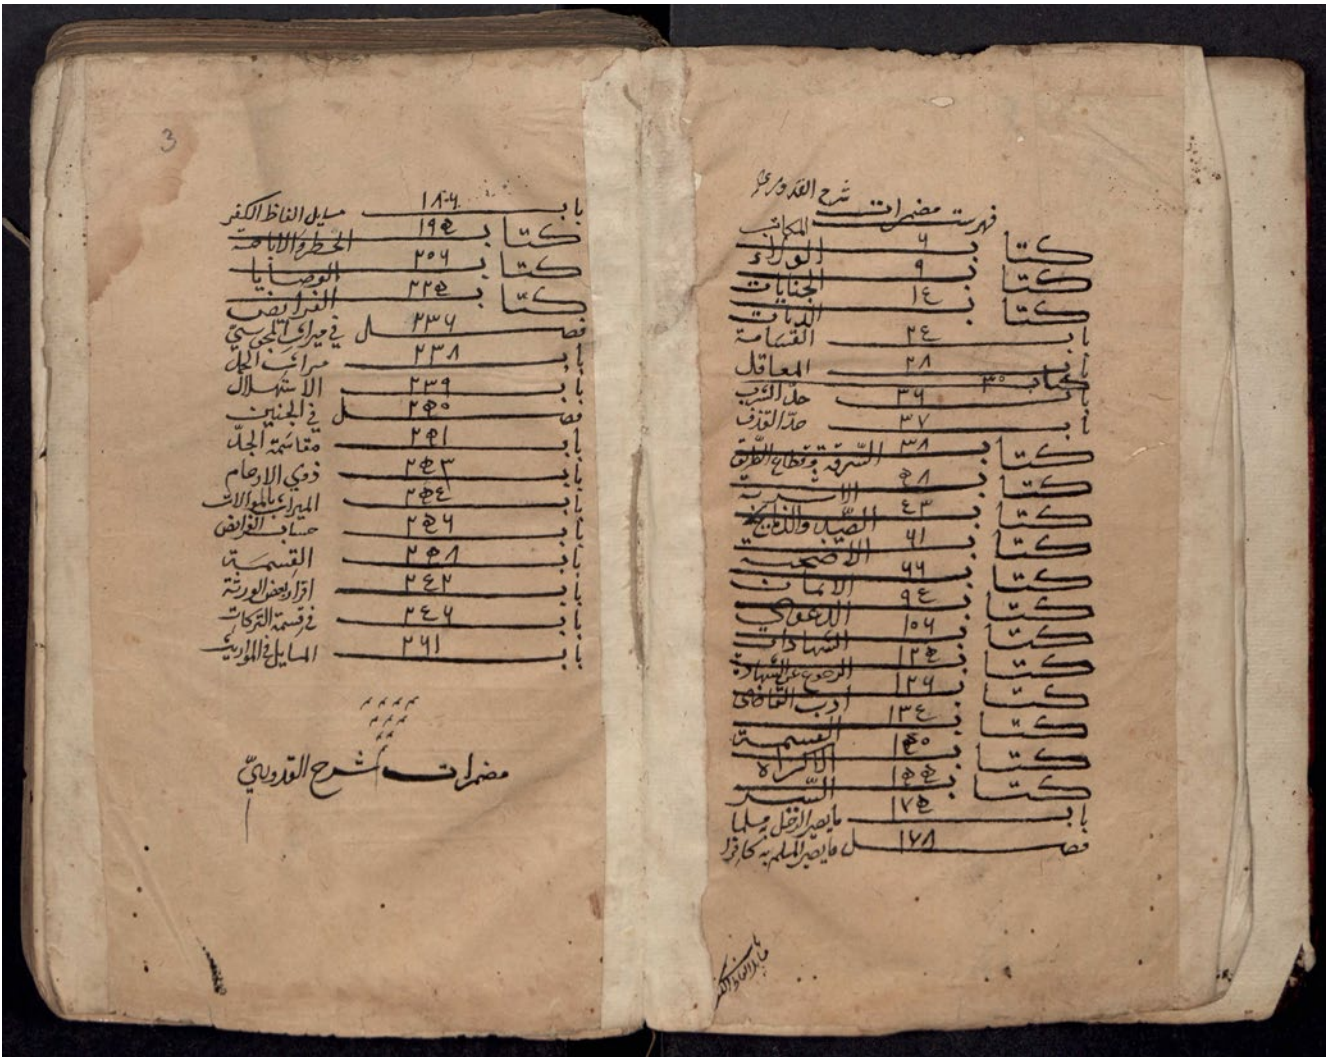 شرح القدوري
فهرست مضمرات
كتاب ٦ المكاتب
كتاب ٩ الولاء
كتاب ١٤ الجنايات
الديات
باب ٢٤ القسامة
باب ٢٨ المعاقل
كتاب ٣٠
باب ٣٦ حد الشرب
باب ٣٧ حد القذف
كتاب ٣٨ السرقة وقطاع الطريق
كتاب الاشربة
كتاب ٤٣ الصيد والذبايح
كتاب ٦١ الاضحية
كتاب ٦٦ الايمان
كتاب ٩٤ الدعوي
كتاب ١٠٦ الشهادات
كتاب ١٢٥ الرجوع عن الشهادة
كتاب ١٢٦ ادب القاضي
كتاب ١٣٤ القسمة
كتاب ١٥٠ الاكراه
كتاب ١٥٥ السير
باب ١٧٥ ما يصير الرجل مسلما
فصل ١٧٨ ما يصير المسلم به كافرا
باب
مسايل الفاظ الكفر
3
باب ١٨٠٦ مسايل الفاظ الكفر
كتاب ١٩٥ الحظر والاباحة
كتاب ٢٠٦ الوصايا
كتاب ٢٢٥ الفرايض
فصل ٢٣٦ في ميراث المجوسي
باب ٢٣٨ ميراث الحمل
باب ٢٣٩ الاستهلال
فصل ٢٥٠ في الجنين
باب ٢٥١ مقاسمة الجد
باب ٢٥٣ ذوي الارحام
باب ٢٥٤ الميراث بالموالات
باب ٢٥٦ حساب الفرايض
باب ٢٥٨ القسمة
باب ٢٤٢ اقرار بعض الورثة
باب ٢٤٦ في قسمة التركات
باب ٢٦١ المسايل في المواريث
مضمرات شرح القدوري